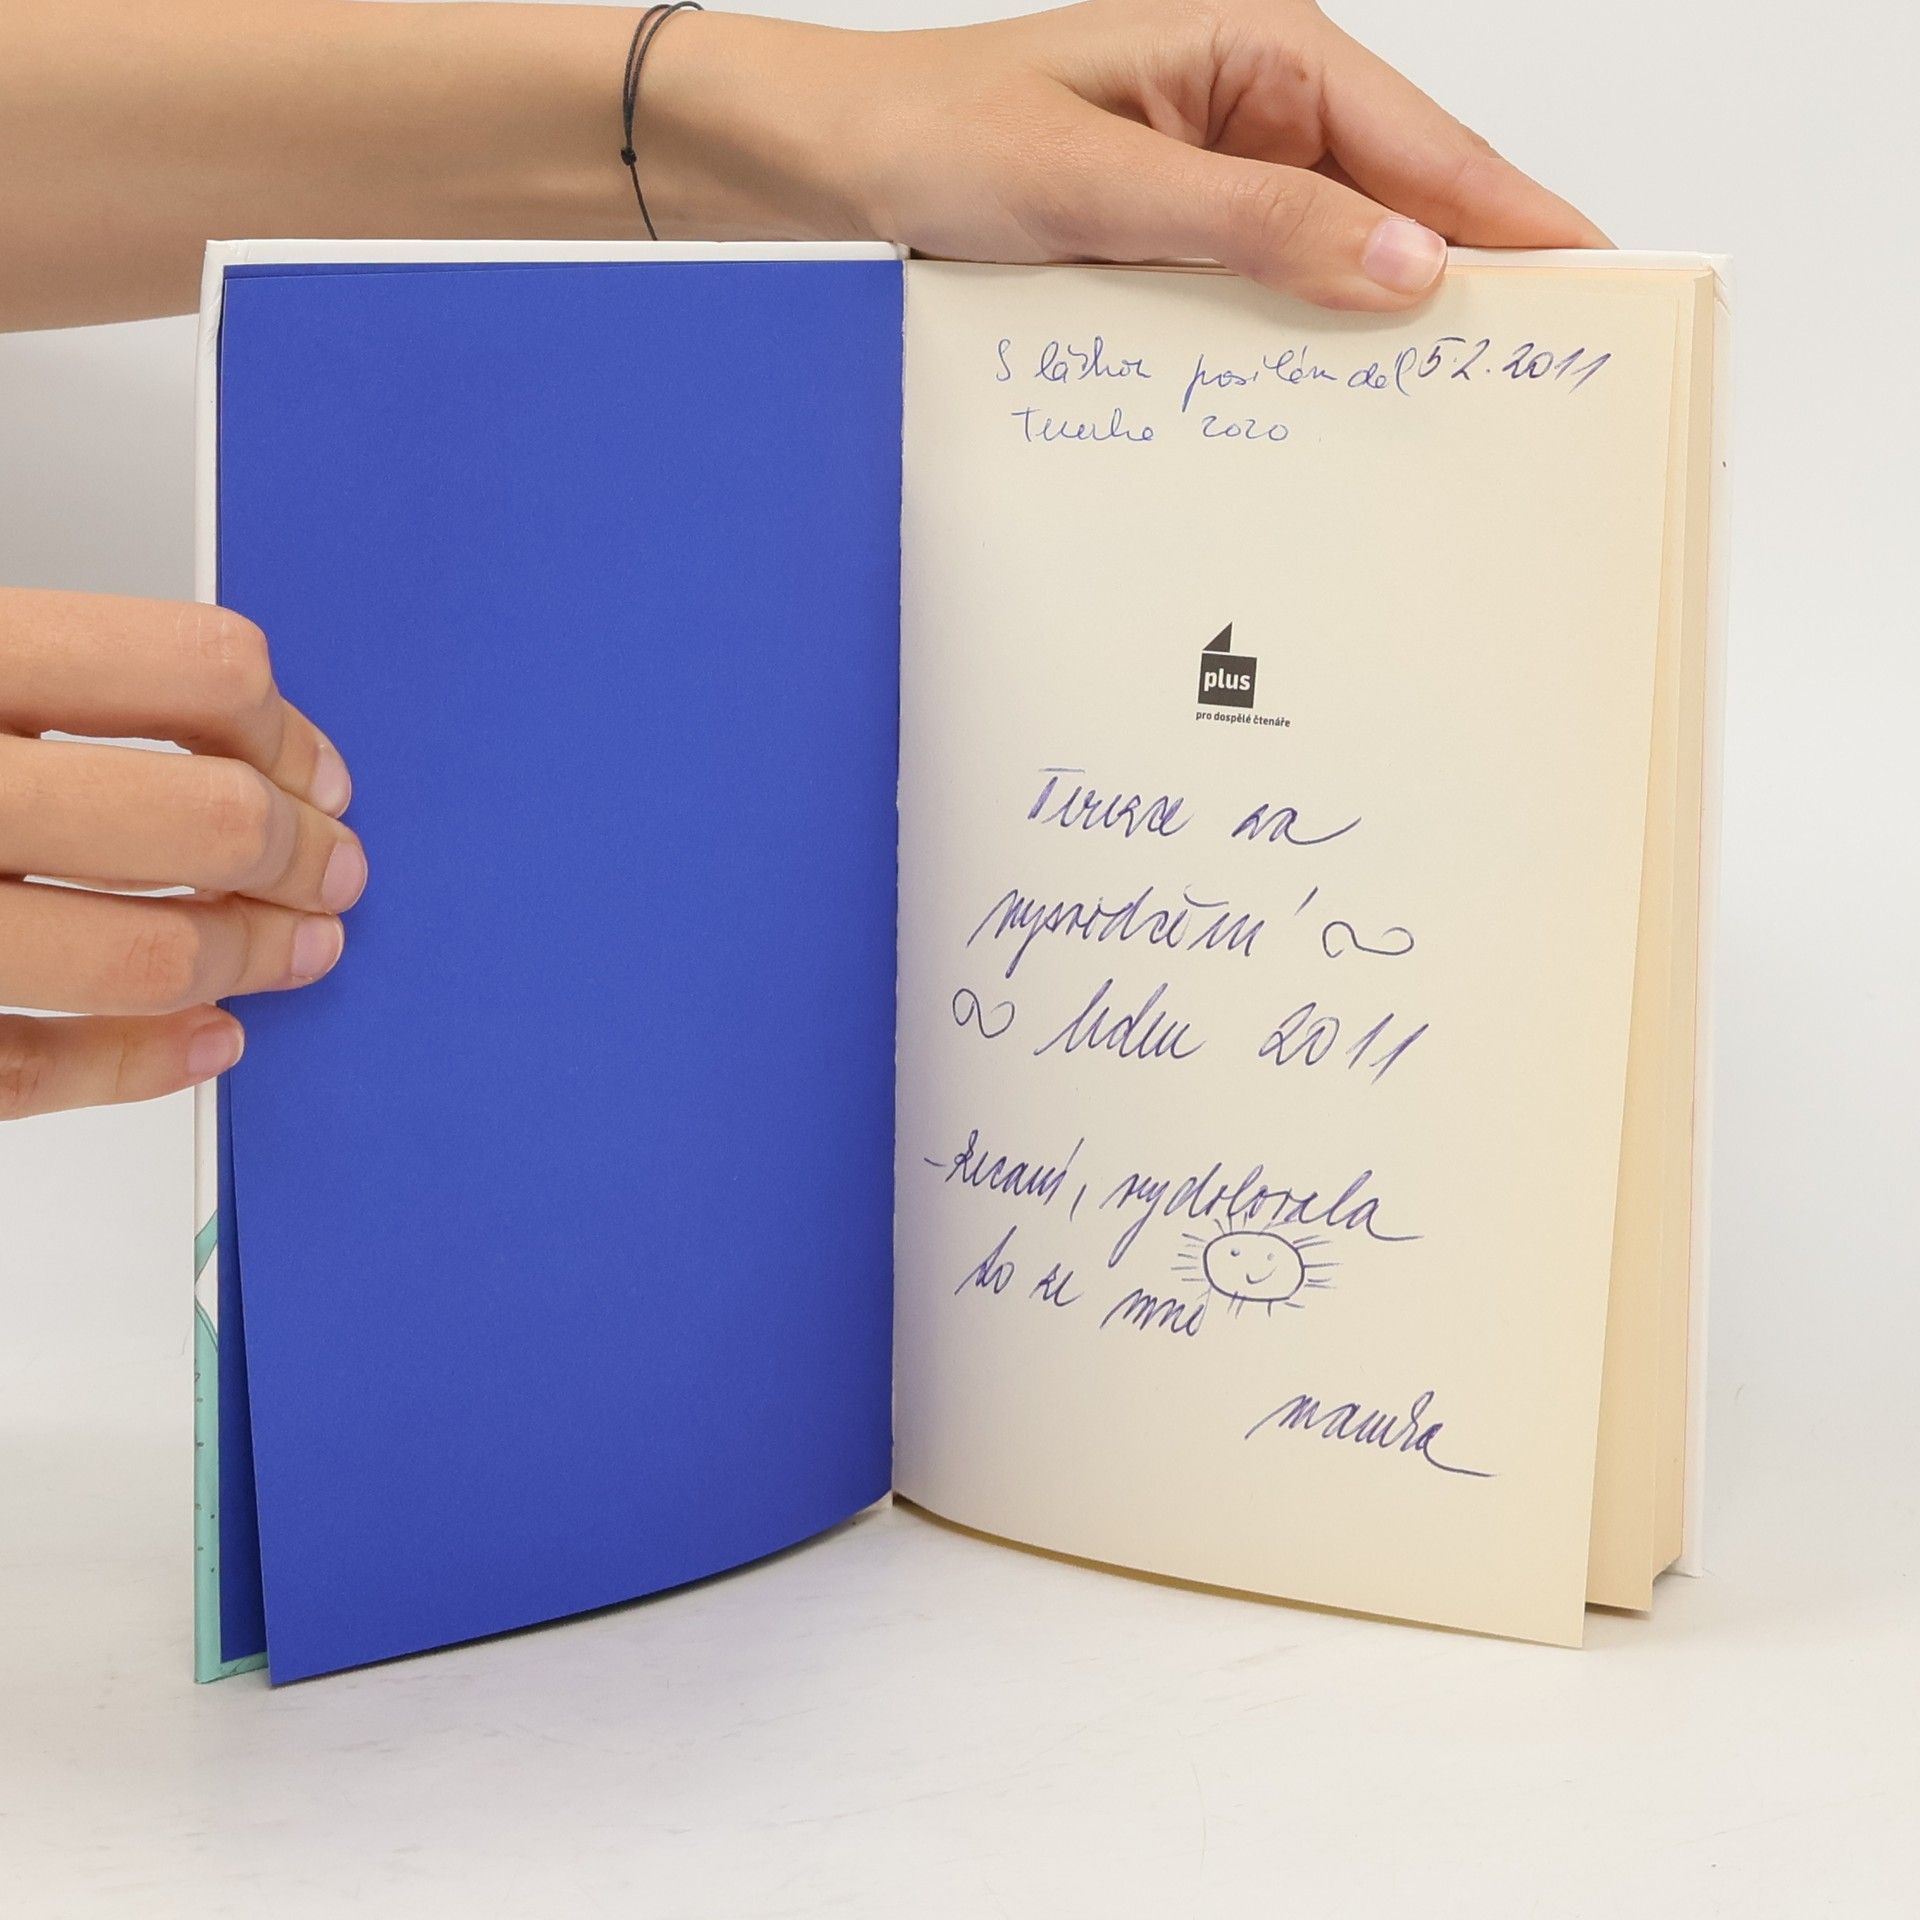 S láskou posílám dál 5.2.2011
Terezka 2020
plus
pro dospělé čtenáře
Tereze za
vysvědčení
leden 2011
- žvaní, vydolovala
to ze mně
mamka